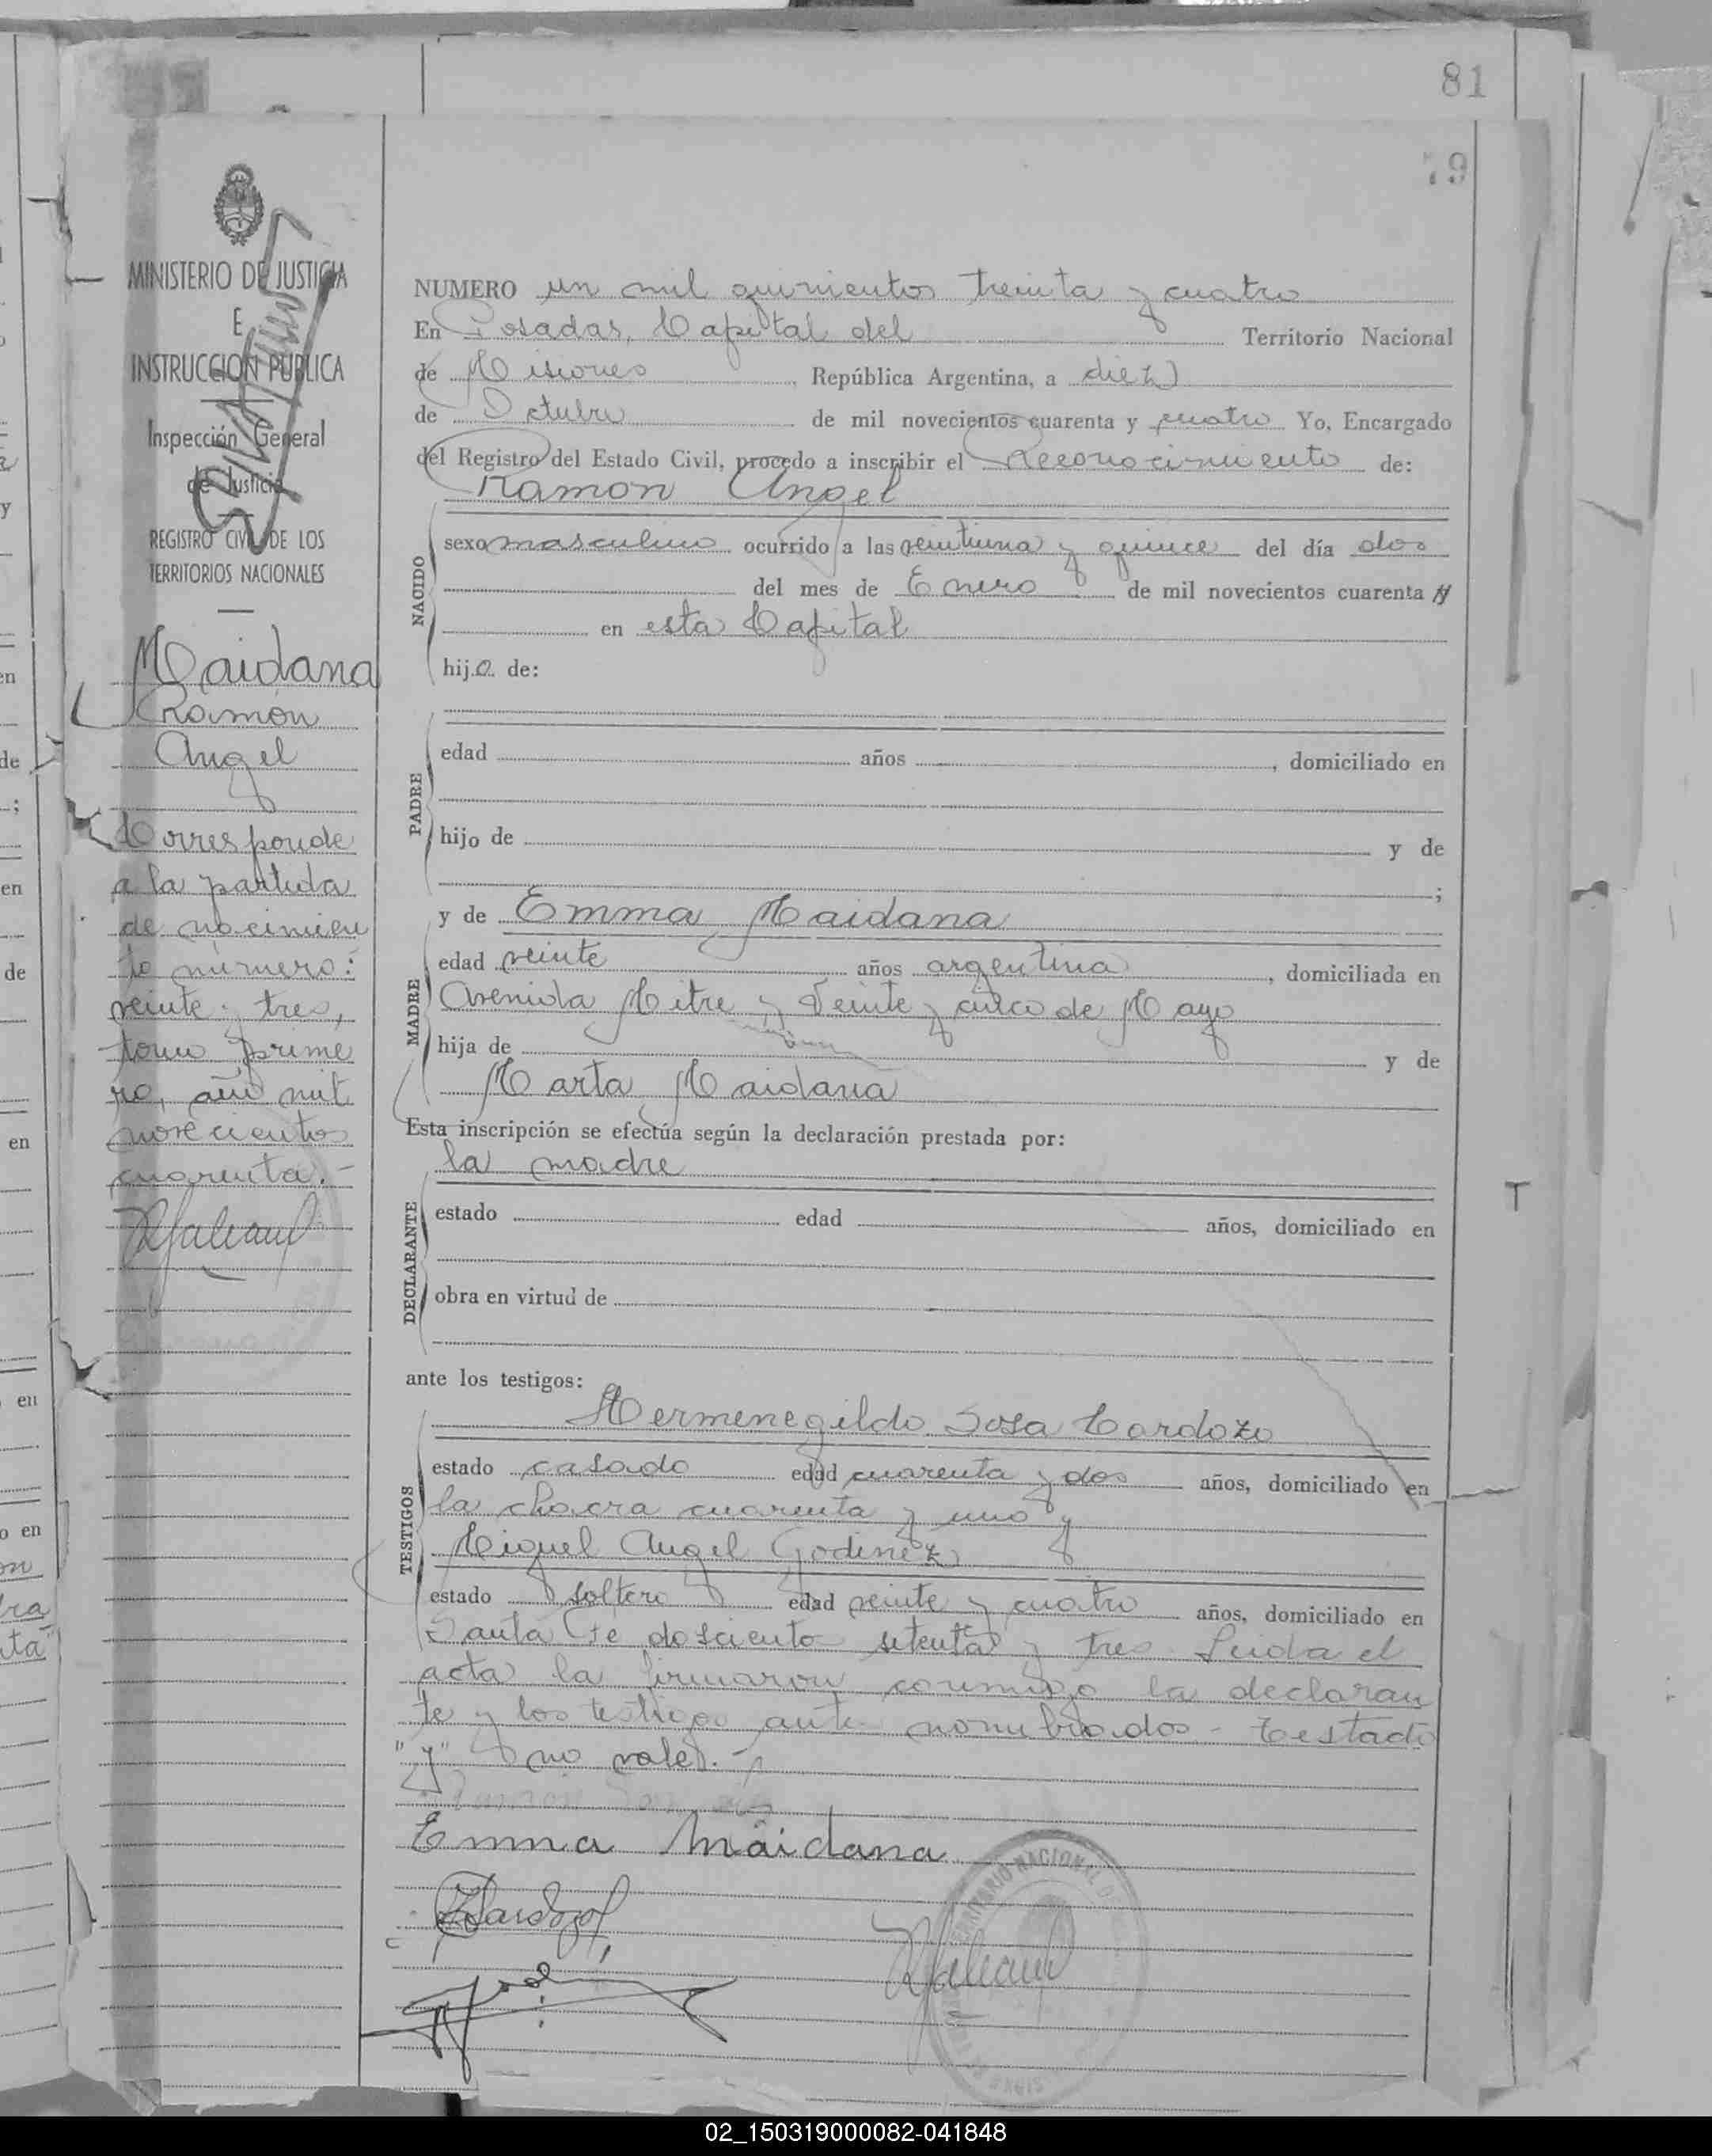 81
79
MINISTERIO DE JUSTICIA
E
INSTRUCCION PUBLICA
Inspección General
de Justicia
REGISTRO CIVIL DE LOS
TERRITORIOS NACIONALES
Maidana
Ramón
Angel
Corresponde
a la partida
de nacimien
to número:
veinte y tres,
tomo prime
ro, año mil
novecientos
cuarenta.-
NUMERO un mil quinientos treinta y cuatro
En Posadas, Capital del Territorio Nacional
de Misiones, República Argentina, a diez
de Octubre de mil novecientos cuarenta y cuatro Yo, Encargado
del Registro del Estado Civil, procedo a inscribir el Reconocimiento de:
Ramón Angel
NACIDO
sexo masculino ocurrido a las veintiuna y quince del día dos
del mes de Enero de mil novecientos cuarenta y
en esta Capital
hijo de:
PADRE
edad años , domiciliado en
hijo de y de
;
MADRE
y de Emma Maidana
edad veinte años argentina, domiciliada en
Avenida Mitre y Veinte y cinco de Mayo
hija de y de
Marta Maidana
Esta inscripción se efectúa según la declaración prestada por:
la madre
DECLARANTE
estado edad años, domiciliado en
obra en virtud de
ante los testigos:
TESTIGOS
Hermenegildo Sosa Cardozo
estado casado edad cuarenta y dos años, domiciliado en
la chacra cuarenta y uno y
Miguel Angel Godinez
estado soltero edad veinte y cuatro años, domiciliado en
Santa Fe doscientos setenta y tres Leida el
acta la firmaron conmigo la declaran
te y los testigos ante nombrados - Testado
"y" no vale.-
Emma Maidana
TERRITORIO NACIONAL DE
T
02_150319000082-041848